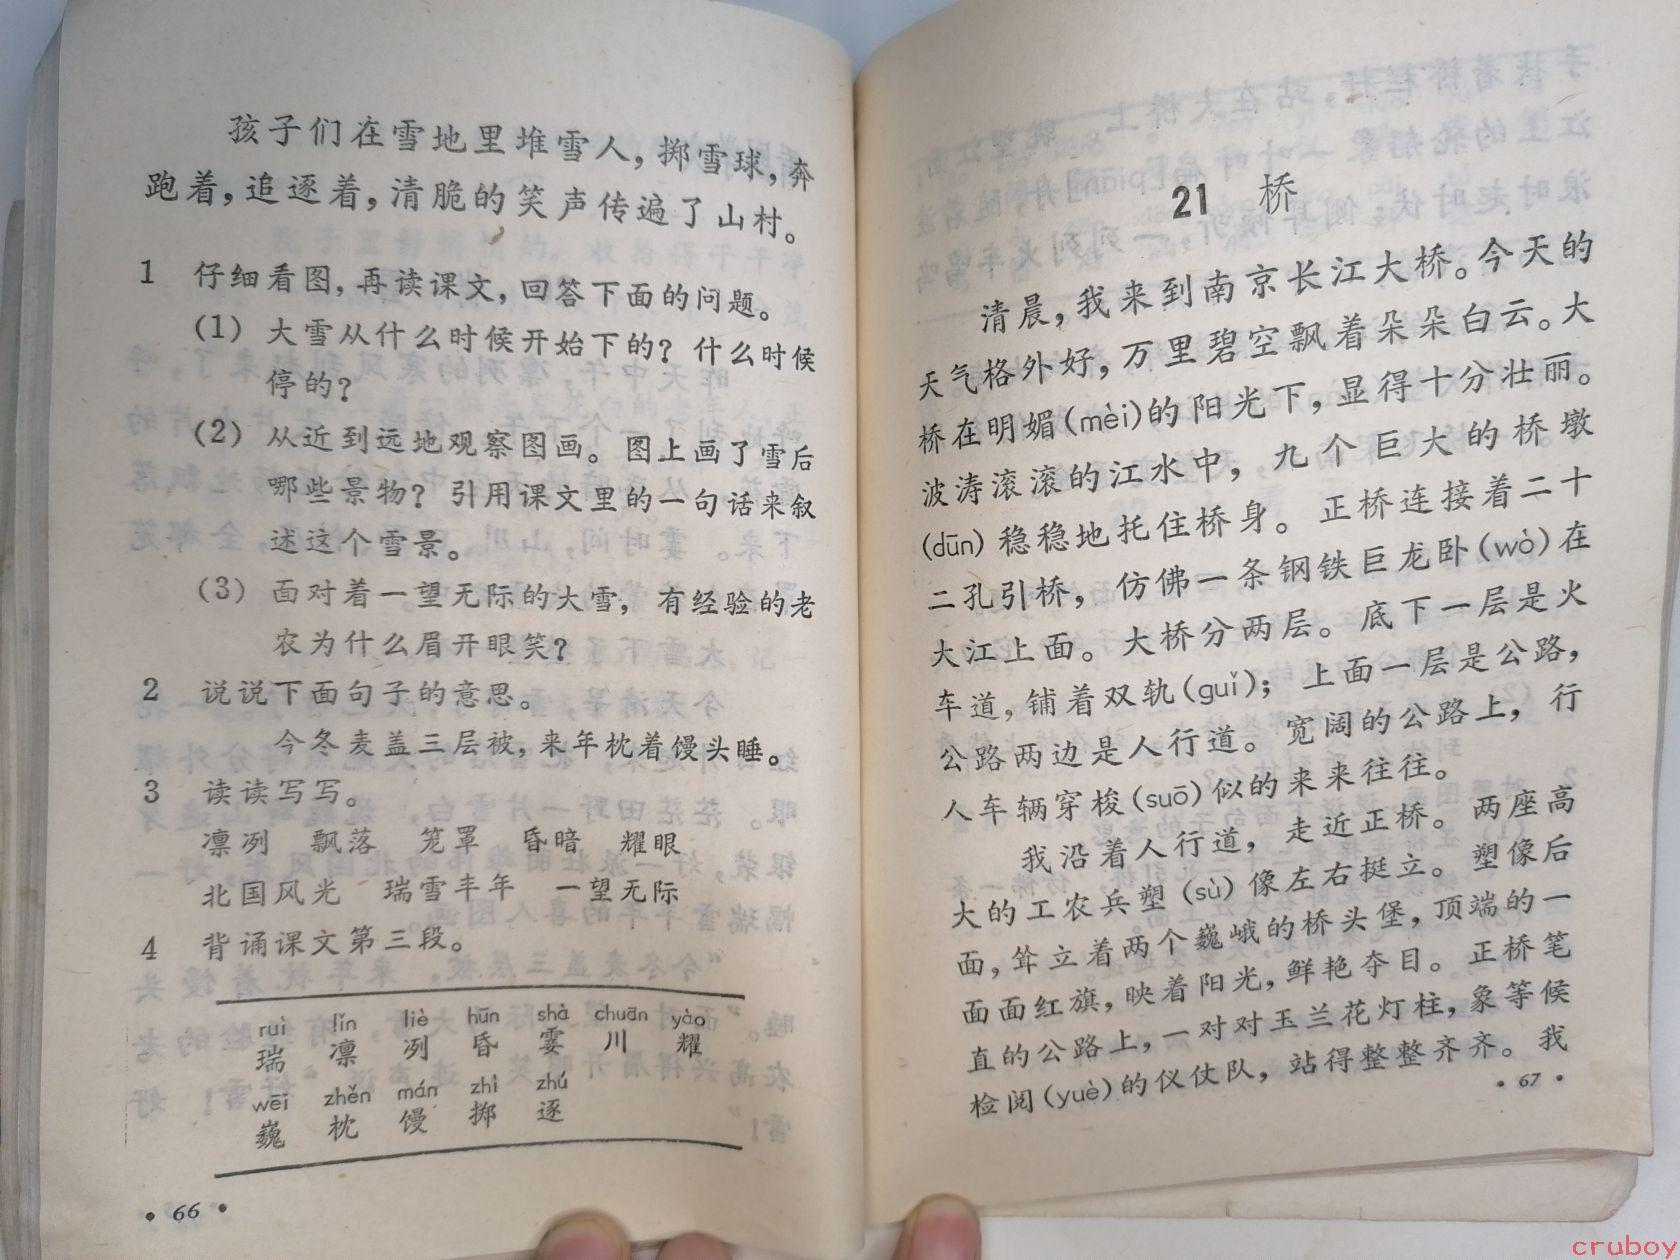 孩子们在雪地里堆雪人，掷雪球，奔
跑着，追逐着，清脆的笑声传遍了山村。
1 仔细看图，再读课文，回答下面的问题。
(1) 大雪从什么时候开始下的？什么时候
停的？
(2) 从近到远地观察图画。图上画了雪后
哪些景物？引用课文里的一句话来叙
述这个雪景。
(3) 面对着一望无际的大雪，有经验的老
农为什么眉开眼笑？
2 说说下面句子的意思。
今冬麦盖三层被，来年枕着馒头睡。
3 读读写写。
凛冽 飘落 笼罩 昏暗 耀眼
北国风光 瑞雪丰年 一望无际
4 背诵课文第三段。
ruì lǐn liè hūn shà chuān yào
瑞 凛 冽 昏 霎 川 耀
wēi zhěn mán zhì zhú
巍 枕 馒 掷 逐
· 66 ·
21 桥
清晨，我来到南京长江大桥。今天的
天气格外好，万里碧空飘着朵朵白云。大
桥在明媚(mèi)的阳光下，显得十分壮丽。
波涛滚滚的江水中，九个巨大的桥墩
(dūn)稳稳地托住桥身。正桥连接着二十
二孔引桥，仿佛一条钢铁巨龙卧(wò)在
大江上面。大桥分两层。底下一层是火
车道，铺着双轨(guǐ)；上面一层是公路，
公路两边是人行道。宽阔的公路上，行
人车辆穿梭(suō)似的来来往往。
我沿着人行道，走近正桥。两座高
大的工农兵塑(sù)像左右挺立。塑像后
面，耸立着两个巍峨的桥头堡，顶端的一
面面红旗，映着阳光，鲜艳夺目。正桥笔
直的公路上，一对对玉兰花灯柱，象等候
检阅(yuè)的仪仗队，站得整整齐齐。我
· 67 ·
cruboy